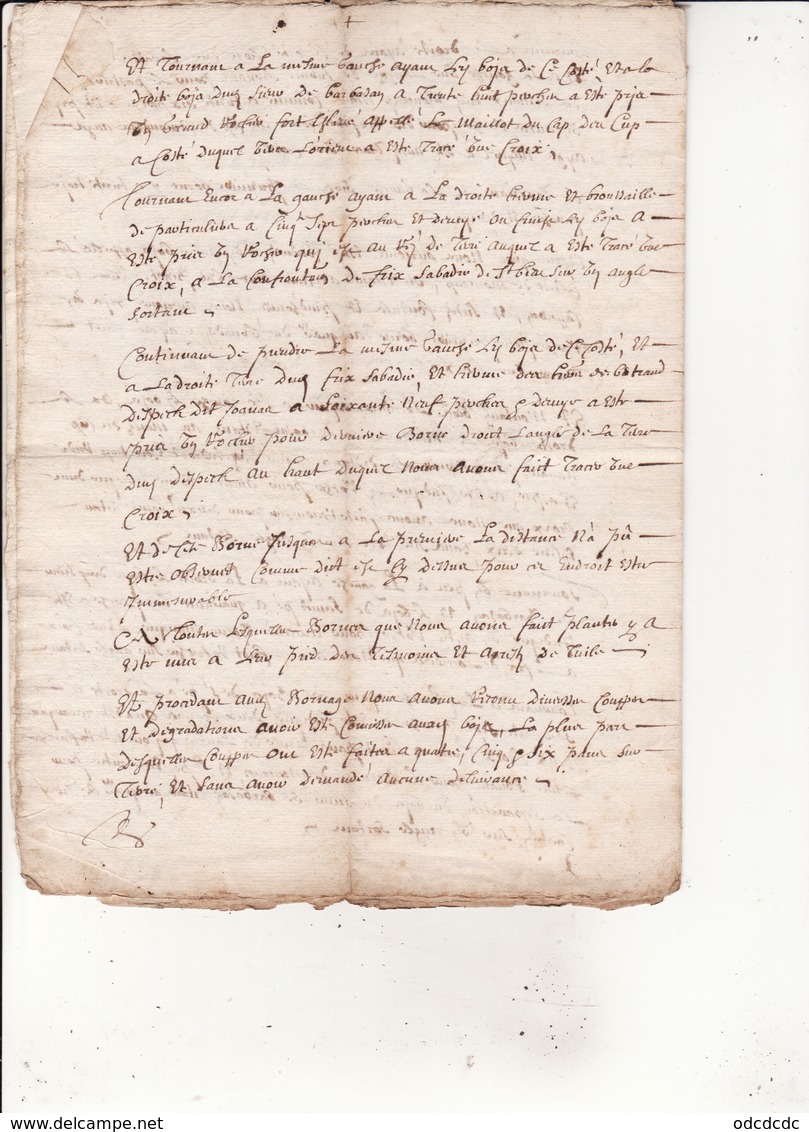 +
Et Tournant a La mesme gauche ayant led bois de Ce Costé Et a la
droite bois dud Sieur de barbasan a Trente huit perches a Esté pris
Un grand Rocher fort Esleve Appellé Le Maillot du Cap deu Cup
a Costé duquel vers L'orient a Este Tracé Une Croix
Tournant Encor a La gauche ayant a La droite herme Et broussaille
de particuliers a Cinqte Sept perches Et demye on finist Led bois A
Esté pris Un Rocher qui est au Rez de Terre auquel a Esté Tracé Une
Croix, a La Confrontaon de frix Sabadie de St bezar Sur Un angle
Sortant
Continuant de prendre La mesme gauche Led bois de Ce Costé, Et
a La droite Terre dud frix Sabadie, Et herme des hers de bertrand
despeck dit Joanas a Soixante Neuf perches & demye a Esté
pris Un Rocher pour derniere Borne droit L'angle de La Terre
dud despeck au haut duquel Nous avons fait Tracer Une
Croix
Et de Cete Borne Jusques a La premiere La distance N'a pû
Estre Observée Comme dit est Cy dessus pour Cet Endroit Estre
Immesurable
Toutes Lesquelles Bornes que Nous avons fait planter y a
Esté mis a Leur pied des Tesmoins Et de Tuile
Et procedant aud Bornage Nous avons Reconu diverses Couppes
Et degradations avoir Esté Comises audit bois, La plus part
desquelles Couppes ont Esté faites a quatre, Cinq & Six pans Sur
Terre, Et Sans avoir demandé aucune delivrance
odcdcdc